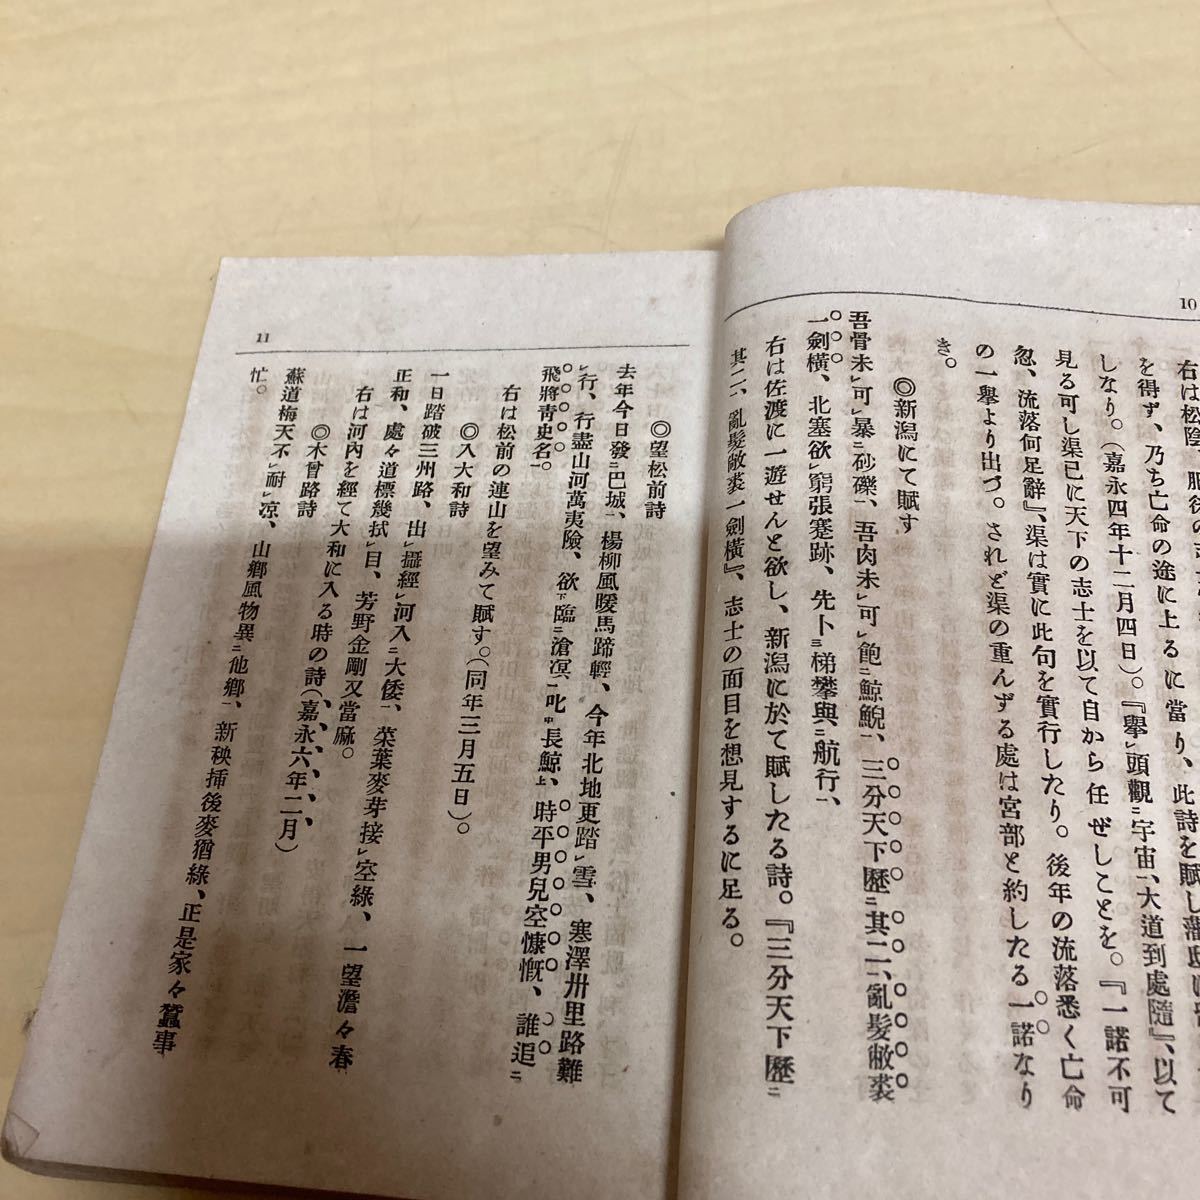 10
右は松陰、
を得ず、乃ち亡命の途に上るに當り、此詩を賦し藩邸に
しなり。(嘉永四年十二月四日)。『擧㆑頭觀㆓宇宙㆒、大道到處隨』、以て
見る可し渠已に天下の志士を以て自から任ぜしことを。『一諾不可
忽、流落何足辭』、渠は實に此句を實行したり。後年の流落悉く亡命
の一擧より出づ。されど渠の重んずる處は宮部と約したる一諾なり
き。
◎新潟にて賦す
吾骨未㆑可㆑暴㆓砂礫㆒、吾肉未㆑可㆑飽㆓鯨鯢㆒、三分天下歷㆓其二㆒、亂髮敝裘
一劍橫、北塞欲㆑窮張騫跡、先卜㆔梯攀與㆓航行㆒、
右は佐渡に一遊せんと欲し、新潟に於て賦したる詩。『三分天下歷㆓
其二㆒、亂髮敝裘一劍橫』、志士の面目を想見するに足る。
11
◎望松前詩
去年今日發㆓巴城㆒、楊柳風暖馬蹄輕、今年北地更踏㆑雪、寒澤卅里路難
㆑行、行盡山河萬夷險、欲㆘臨㆓滄溟㆒叱㆗長鯨㆖、時平男兒空慷慨、誰追㆓
飛將青史名㆒。
右は松前の連山を望みて賦す。(同年三月五日)。
◎入大和詩
一日踏破三州路、出㆑攝經㆑河入㆓大倭㆒、菜葉麥芽接㆑空綠、一望澹々春
正和、處々道標幾拭㆑目、芳野金剛又當麻。
右は河內を經て大和に入る時の詩(嘉永六年二月)
◎木曾路詩
蘇道梅天不㆑耐㆑凉、山鄉風物異㆓他鄉㆒、新秧揷後麥猶綠、正是家々蠶事
忙。